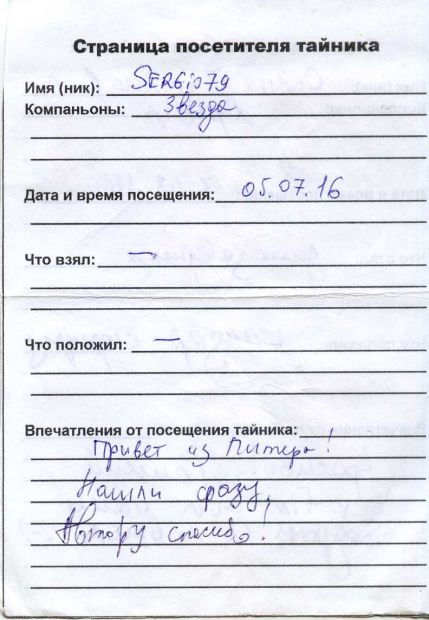 Страница посетителя тайника
Имя (ник): SERGiO79
Компаньоны: Звезда
Дата и время посещения: 05.07.16
Что взял: —
Что положил: —
Впечатления от посещения тайника:
Привет из Питера!
Нашли сразу,
Автору спасибо!